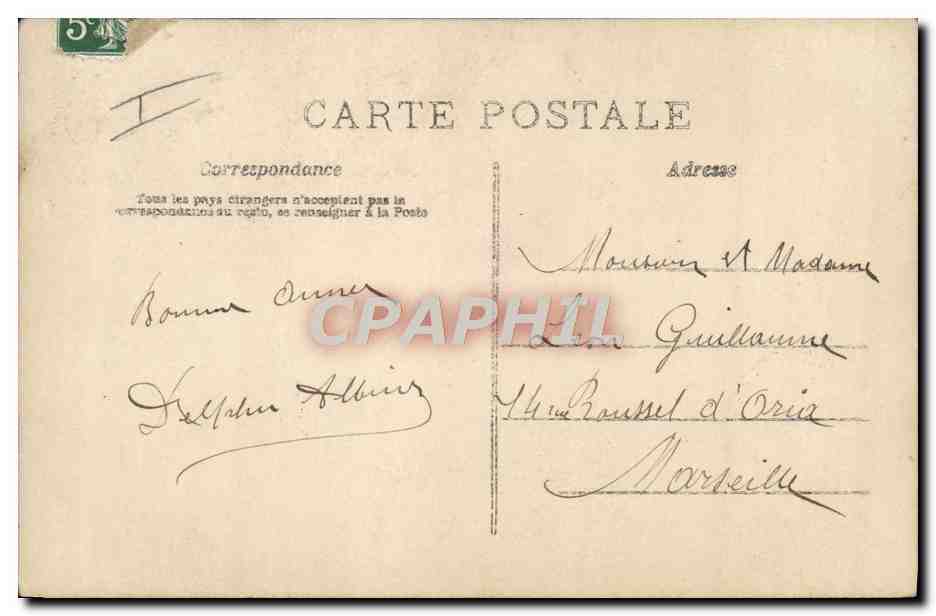 5c
I
CARTE POSTALE
Correspondance
Adresse
Tous les pays étrangers n'acceptent pas la
correspondance au recto, se renseigner à la Poste
Bonne Année
Delphin Albine
Monsieur et Madame
Léon Guillaume
14 rue Roussel d'Oria
Marseille
CPAPHIL